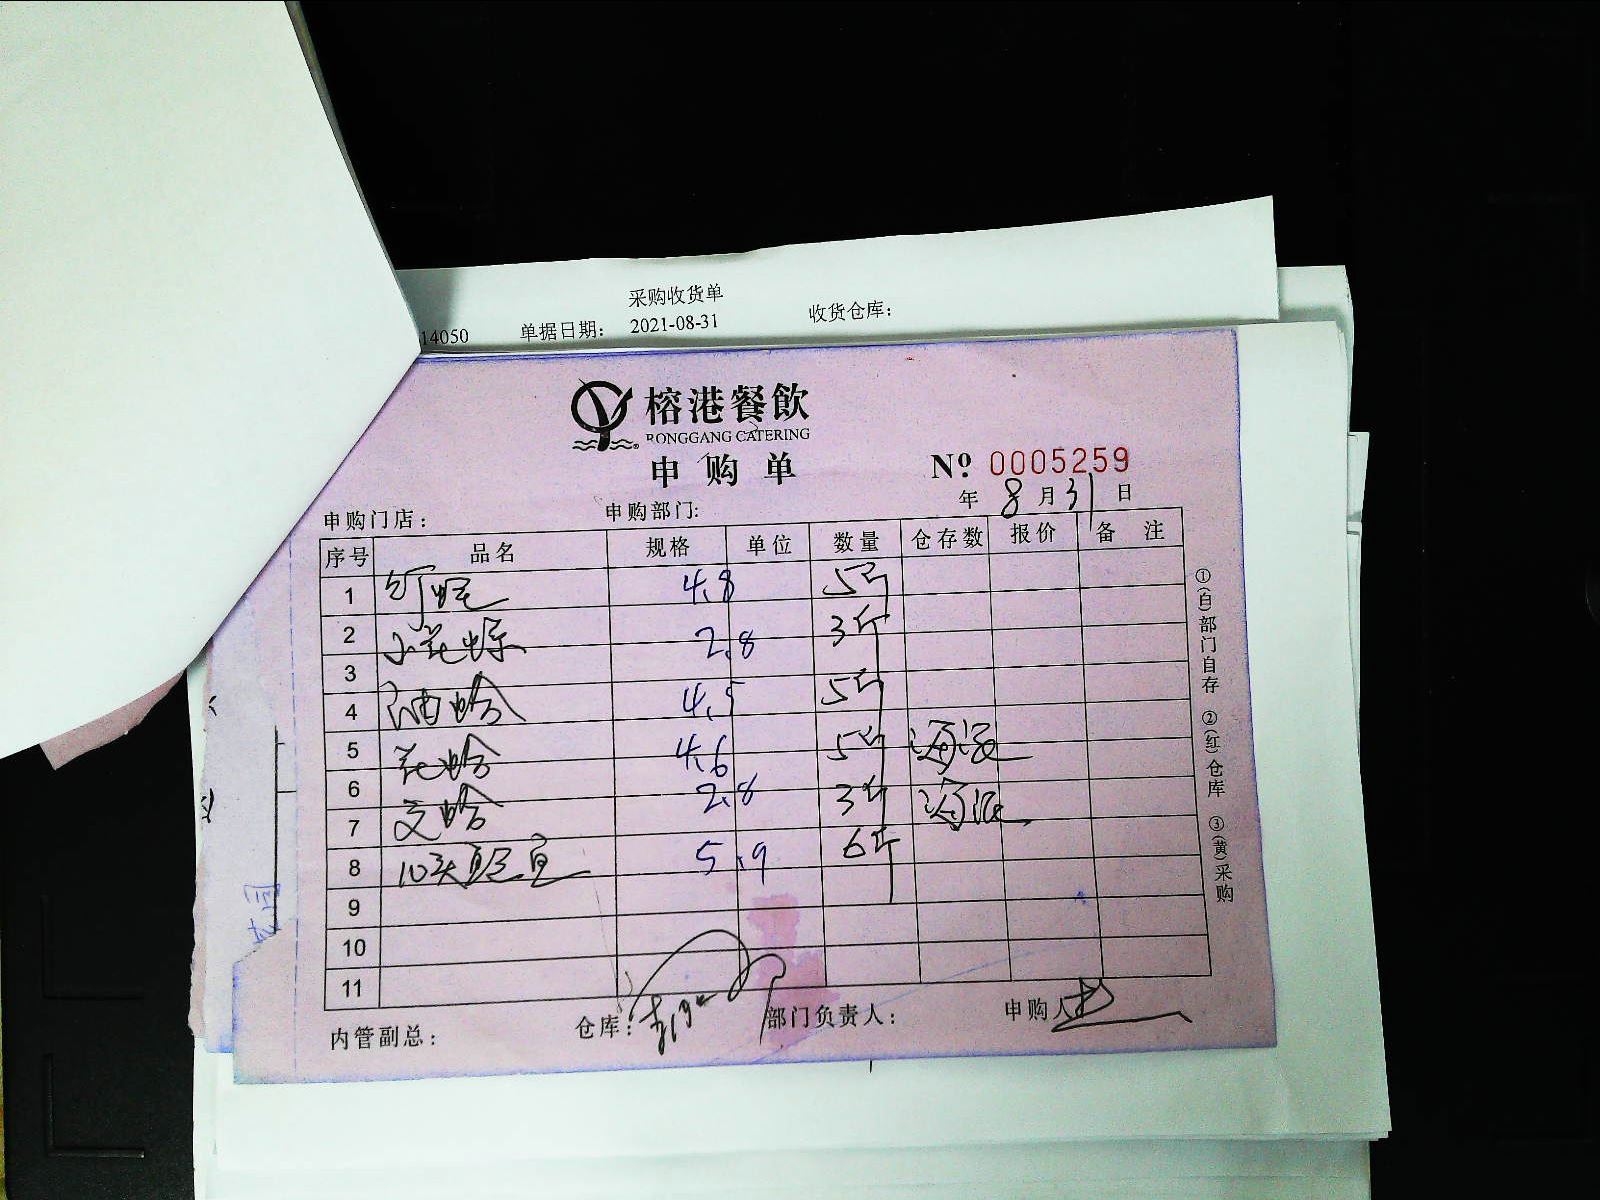 采购收货单
14050 单据日期: 2021-08-31 收货仓库:
榕港餐飲
RONGGANG CATERING
申购单
№ 0005259
年 8 月 31 日
申购门店: 申购部门:
序号 品名 规格 单位 数量 仓存数 报价 备注
1 4.8 5斤
2 小花螺 2.8 3斤
3
4 油蛤 4.5 5斤
5 花蛤 4.6 5斤
6 文蛤 2.8 3斤
7
8 10头 5.9 6斤
9
10
11
内管副总: 仓库: 部门负责人: 申购人
①(白)部门自存 ②(红)仓库 ③(黄)采购